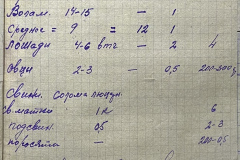 Волам. 14-15 — 1
Средное = 9 = 12 1
Лошади 4-6 втч — 2 4
Овци 2-3 — 0,5 200-300г
Свиньи. Солома
в. матки 1 к 6
подсвин. 05 2-3
поросята — 200-0,5